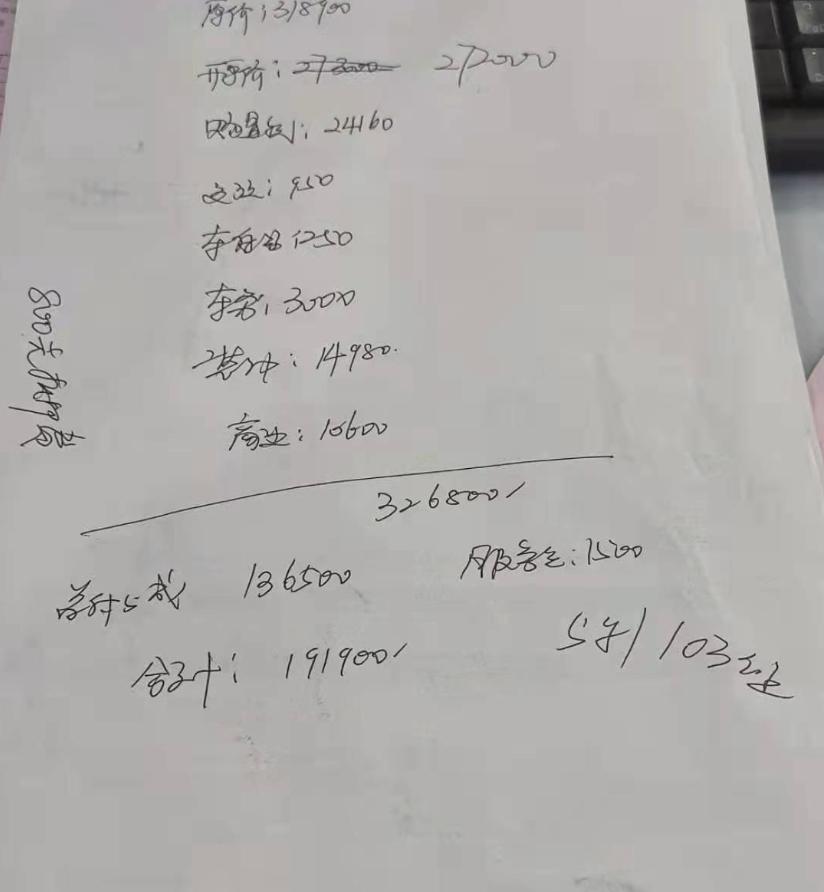 原价:318900
开票价:273000 272000
购置税:24160
交强:950
车船 1250
3000
14980.
商业:10600
326800
首付5成 136500 服务金:1500
合计:191900
5年